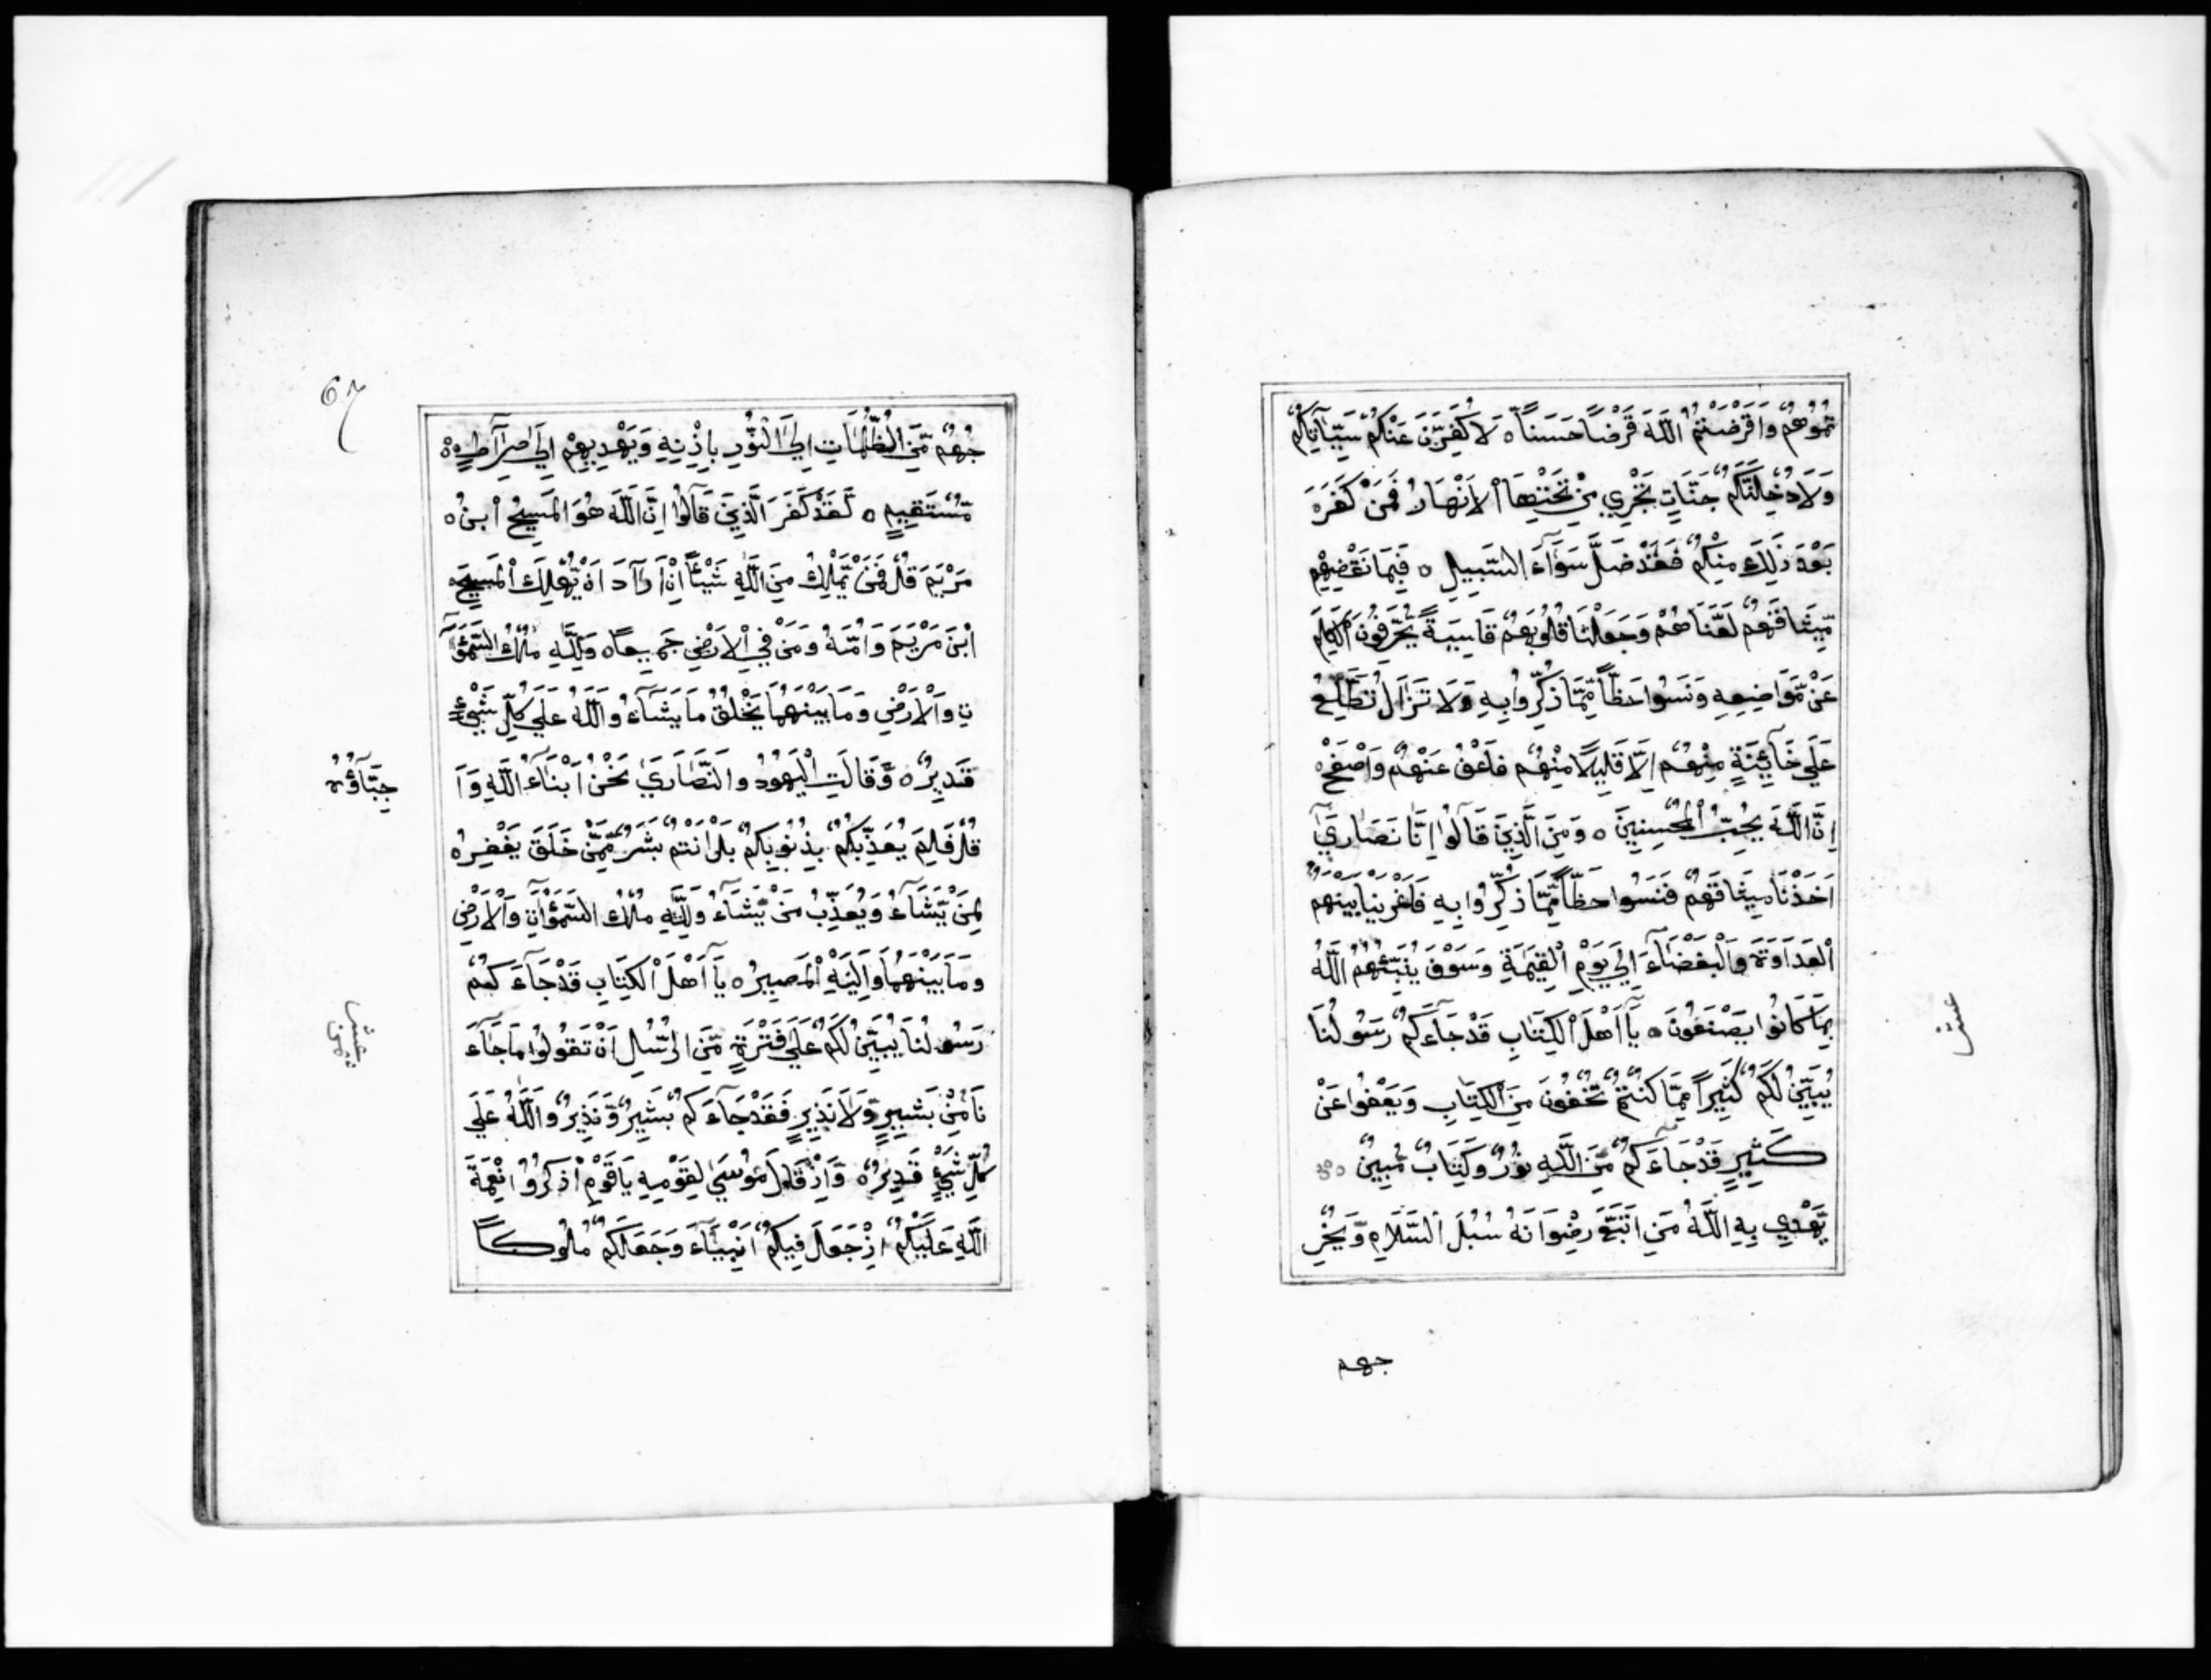 تُمُوهُمْ وَاَقْرَضْتُمُ اللَّهَ قَرْضًا حَسَنًا ه لَاُكَفِّرَنَّ عَنْكُمْ سَيِّآتِكُمْ
وَلَاُدْخِلَنَّكُمْ جَنَّاتٍ تَجْرِي مِنْ تَحْتِهَا الْاَنْهَارُ فَمَنْ كَفَرَ ه
بَعْدَ ذَلِكَ مِنْكُمْ فَقَدْ ضَلَّ سَوَآءَ السَّبِيلِ ه فَبِمَا نَقْضِهِمْ
مِّيثَاقَهُمْ لَعَنَّاهُمْ وَجَعَلْنَا قُلُوبَهُمْ قَاسِيَةً يُحَرِّفُونَ الْكَلِمَ
عَنْ مَّوَاضِعِهِ وَنَسُوا حَظًّا مِّمَّا ذُكِّرُوا بِهِ وَلَا تَزَالُ تَطَّلِعُ
عَلَي خَآئِنَةٍ مِنْهُمْ اِلَّا قَلِيلًا مِنْهُمْ فَاعْفُ عَنْهُمْ وَاصْفَحْ ه
اِنَّ اللَّهَ يُحِبُّ الْمُحْسِنِينَ ه وَمِنَ الَّذِينَ قَالُوا اِنَّا نَصَارَيٓ
اَخَذْنَا مِيثَاقَهُمْ فَنَسُوا حَظًّا مِّمَّا ذُكِّرُوا بِهِ فَاَغْرَيْنَا بَيْنَهُمُ
الْعَدَاوَةَ وَالْبَغْضَآءَ اِلَي يَوْمِ الْقِيٰمَةِ وَسَوْفَ يُنَبِّئُهُمُ اللَّهُ
بِمَا كَانُوا يَصْنَعُونَ ه يَآ اَهْلَ الْكِتَابِ قَدْ جَآءَكُمْ رَسُولُنَا
يُبَيِّنُ لَكُمْ كَثِيرًا مِمَّا كُنْتُمْ تُخْفُونَ مِنَ الْكِتَابِ وَيَعْفُوا عَنْ
كَثِيرٍ قَدْ جَآءَكُمْ مِّنَ اللَّهِ نُورٌ وَكِتَابٌ مُبِينٌ ه
يَّهْدِي بِهِ اللَّهُ مَنِ اتَّبَعَ رِضْوَانَهُ سُبُلَ السَّلَامِ وَيُخْرِ
عشر
جهم
67
جُهُمْ مِّنَ الظُّلُمَاتِ اِلَي النُّورِ بِاِذْنِهِ وَيَهْدِيهِمْ اِلَي صِرَآطٍ ه
مُّسْتَقِيمٍ ه لَقَدْ كَفَرَ الَّذِينَ قَآلُوا اِنَّ اللَّهَ هُوَ الْمَسِيحُ ابْنُ ه
مَرْيَمَ قُلْ فَمَنْ يَّمْلِكُ مِنَ اللَّهِ شَيْئًا اِنْ اَرَآدَ اَنْ يُّهْلِكَ الْمَسِيحَ
ابْنَ مَرْيَمَ وَاُمَّهُ وَمَنْ فِي الْاَرْضِ جَمِيعًا ه وَلِلَّهِ مُلْكُ السَّمٰوَآ
تِ وَالْاَرْضِ وَمَا بَيْنَهُمَا يَخْلُقُ مَا يَشَآءُ وَاللَّهُ عَلَي كُلِّ شَيْءٍ
قَدِيرٌ ه وَّقَالَتِ الْيَهُودُ وَالنَّصَارَيٰ نَحْنُ اَبْنَآءُ اللَّهِ وَاَ
حِبَّآؤُهُ
قُلْ فَلِمَ يُعَذِّبُكُمْ بِذُنُوبِكُمْ بَلْ اَنْتُمْ بَشَرٌ مِّمَّنْ خَلَقَ يَغْفِرُ ه
لِمَنْ يَّشَآءُ وَيُعَذِّبُ مَنْ يَّشَآءُ وَلِلَّهِ مُلْكُ السَّمٰوَآتِ وَالْاَرْضِ
وَمَا بَيْنَهُمَا وَاِلَيْهِ الْمَصِيرُ ه يَآ اَهْلَ الْكِتَابِ قَدْ جَآءَكُمْ
رَسُولُنَا يُبَيِّنُ لَكُمْ عَلَي فَتْرَةٍ مِّنَ الرُّسُلِ اَنْ تَقُولُوا مَا جَآءَ
نَا مِنْ بَشِيرٍ وَّلَا نَذِيرٍ فَقَدْ جَآءَكُمْ بَشِيرٌ وَّنَذِيرٌ وَاللَّهُ عَلَي
كُلِّ شَيْءٍ قَدِيرٌ ه وَّاِذْ قَالَ مُوسَيٰ لِقَوْمِهِ يَا قَوْمِ اذْكُرُوا نِعْمَةَ
اللَّهِ عَلَيْكُمْ اِذْ جَعَلَ فِيكُمْ اَنْبِيَآءَ وَجَعَلَكُمْ مُلُوكًا